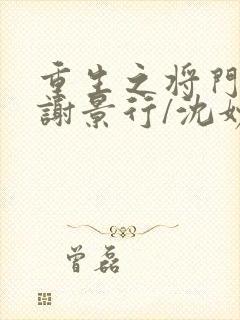 重生之将門
謝景行/沈妙
曾磊